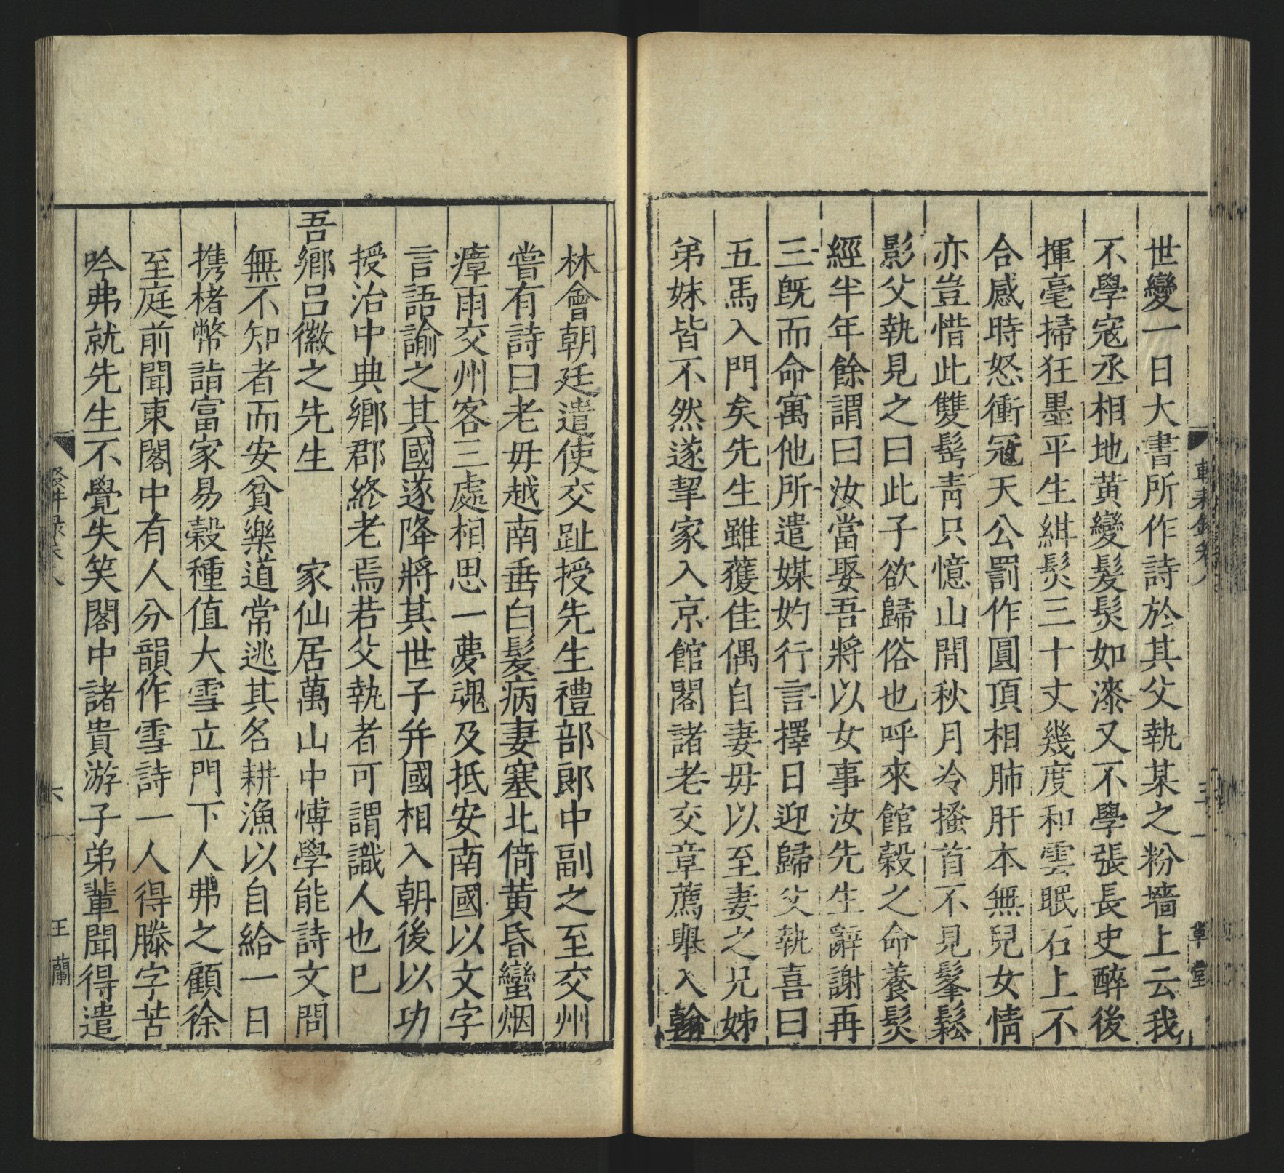 世變一日大書所作詩於其父執某之粉墻上云我
不學寇丞相地黃變髮髮如漆又不學張長史醉後
揮毫掃狂墨平生緋髮三十丈幾度和雲眠石上不
合感時怒衝冠天公罰作圓頂相肺肝本無兒女情
亦豈惜此雙髩青只憶山間秋月冷搔首不見鬔鬆
影父執見之曰此子欲歸俗也呼來館穀之命養髮
經半年餘謂曰汝當娶吾將以女事汝先生辭謝再
三旣而命寓他所遣媒妁行言擇日迎歸父執喜曰
五馬入門矣先生雖獲佳偶自妻毋以至妻之兄姊
弟妹皆不然遂挈家入京館閣諸老交章薦舉入翰
林會朝廷遣使交趾授先生禮部郎中副之至交州
嘗有詩曰老毋越南垂白髮病妻塞北倚黃昏蠻烟
瘴雨交州客三處相思一夢魂及抵安南國以文字
言語諭之其國遂降將其世子幷國相入朝後以功
授治中典鄉郡終老焉若父執者可謂識人也已
吾鄉吕徽之先生 家仙居萬山中博學能詩文問
無不知者而安貧樂道常逃其名耕漁以自給一日
携楮幣詣富家易穀種值大雪立門下人弗之顧徐
至庭前聞東閣中有人分韻作雪詩一人得滕字苦
吟弗就先生不覺失笑閣中諸貴游子弟輩聞得遣
六
王蘭